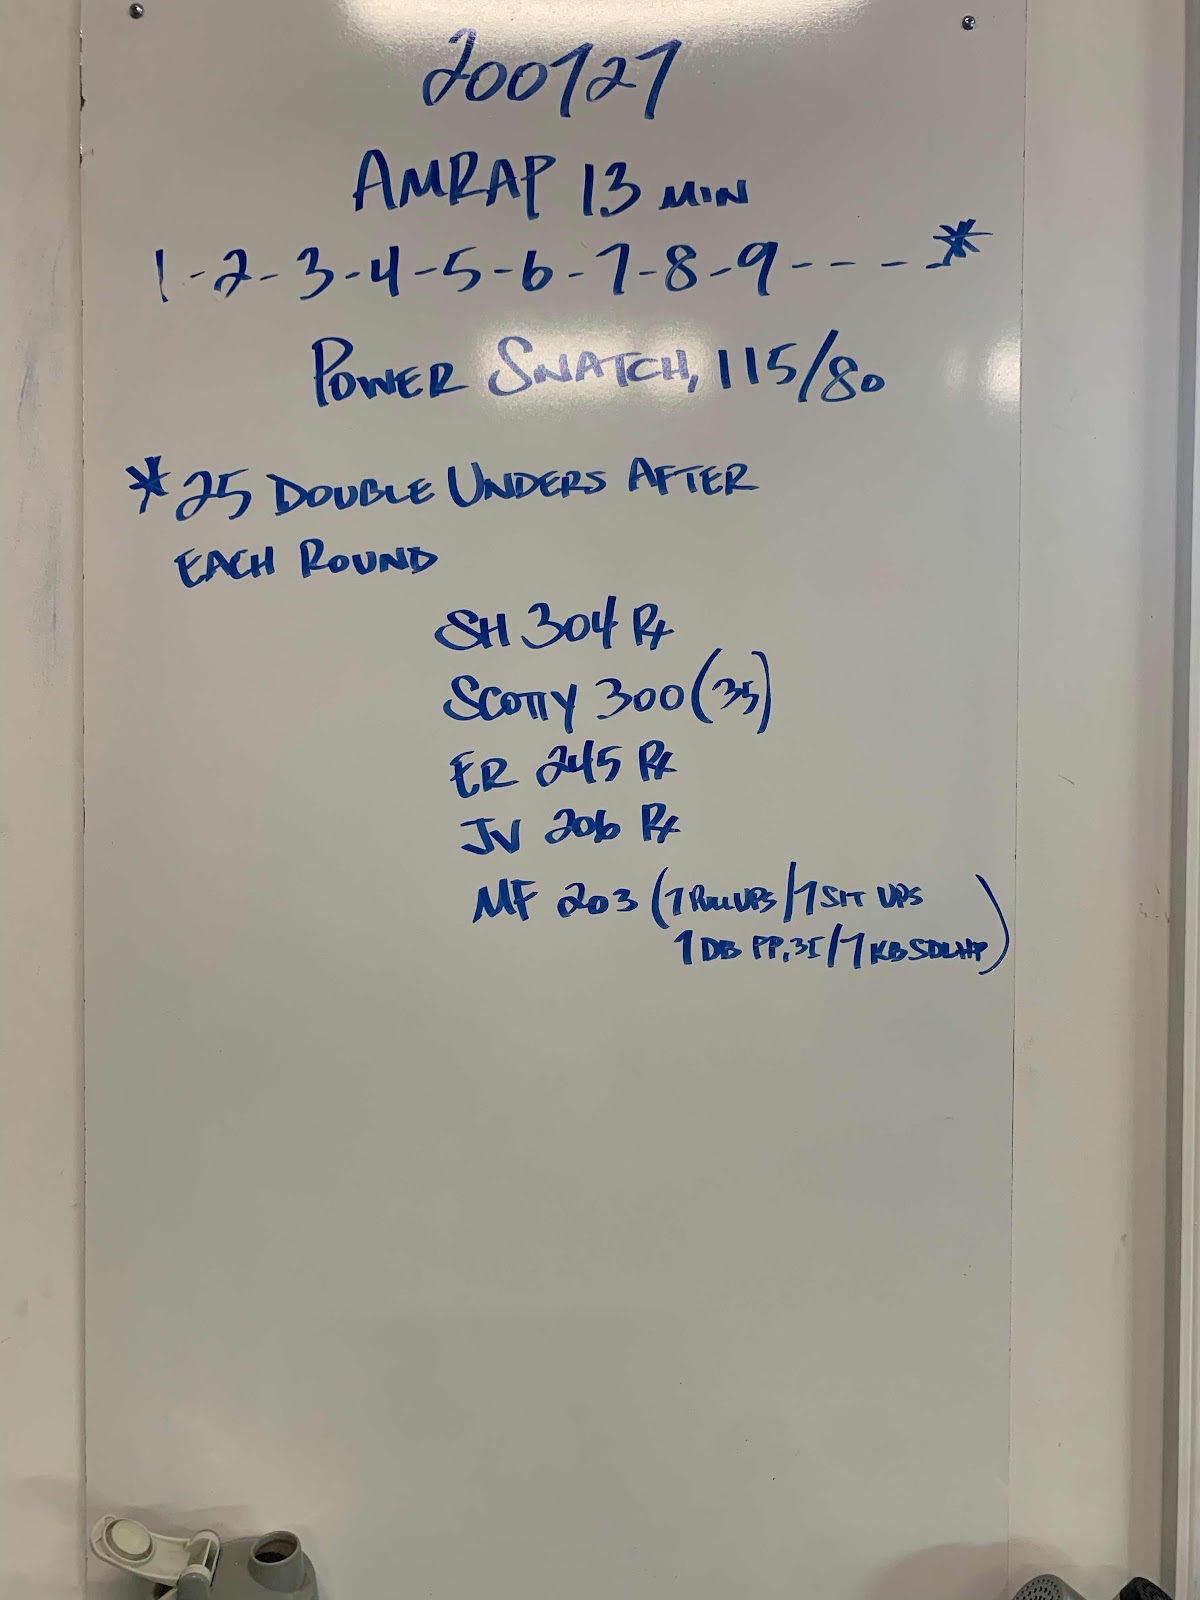 200727
AMRAP 13 MIN
1-2-3-4-5-6-7-8-9----*
POWER SNATCH, 115/80
*25 DOUBLE UNDERS AFTER
EACH ROUND
SH 304 Rx
SCOTTY 300 (35)
ER 245 Rx
JV 206 Rx
MF 203 (7 PULLUPS/7 SIT UPS
7 DB PP, 35/7 KB SDLHP)